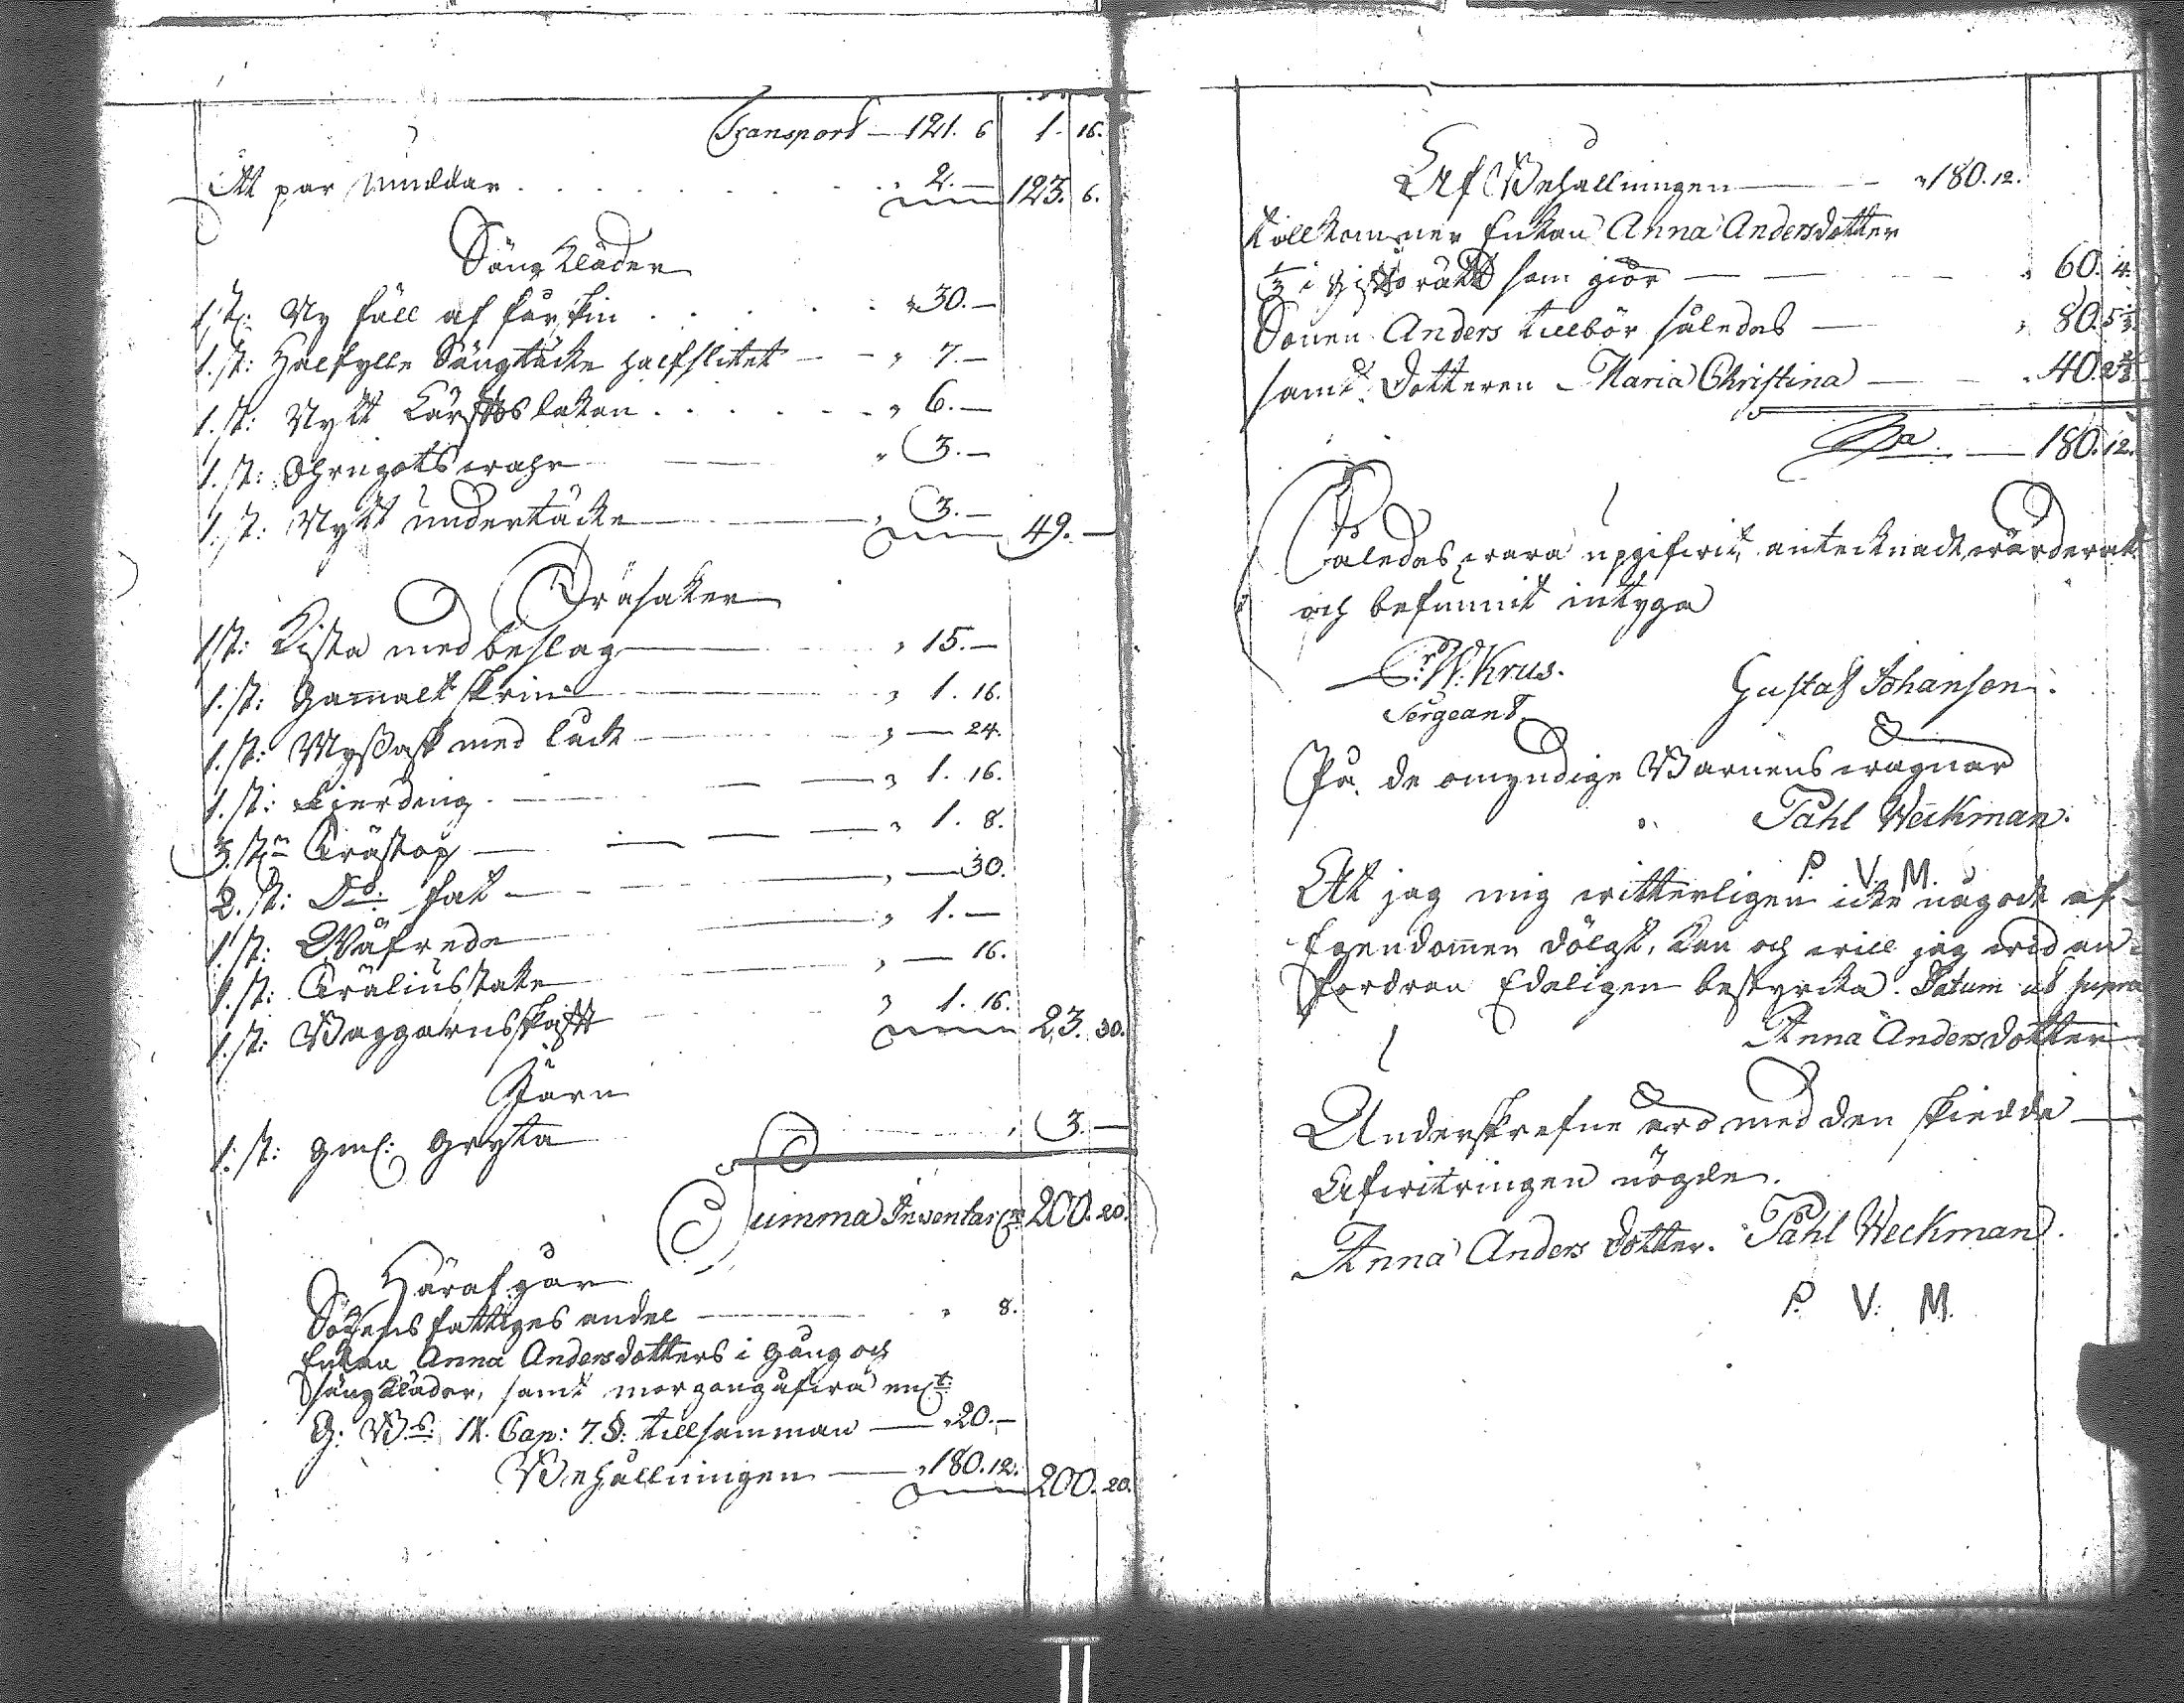 Transport — 121. 6 1. 16.
Ett par muddar . . . . . . . . . 2. — 123. 6.
Sängkläder
1. st: Ny fäll af fårskin . . . . . . 30. —
1. st: Halfylle Sängtäcke halfslitet — — 7. —
1. st: Nytt Lärftslakan . . . . . — 6. —
1. st: Öhrngåtswahr — 3. —
1. st: Nytt undertäcke — 3. — 49. —
Träsaker
1 st: Kista med beslag — 15. —
1. st: Gammalt skrin — 1. 16.
1. st: Myssask med låck — — 24.
1. st: Fjerding . — 1. 16.
3. st:n Trästop — 1. 8.
2. st: D:o fat — — 30.
1. st: Wäfrede — 1. —
1. st: Träliusstake — 16.
1. st: Waggarnsskafft 1. 16. 23. 30.
Järn
1. st: gml: Gryta 3. —
Summa Inventar: 200. 20.
Häraf går
Sochnens fattiges andel — 8.
Enkan Anna Andersdotters i Gång och
Sängkläder, samt morgongåfwa enl:t
G: B:s: IX. Cap: 7. §: tillsamman — 20. —
Behållningen — 180. 12. 200. 20.
Af Behållningen — 180. 12.
tillkommer Enkan Anna Andersdotter
1/3 i giftorätt som giör — 60. 4.
Sonen Anders tillbör således — 80. 5 1/3.
samt Dotteren Maria Christina — 40. 2 2/3
S:a — 180. 12.
Således wara upgifwit, antecknadt, wärderat
och befunnit intyga
P. W. Krus. Gustaf Johanson.
Sergeant
På de omyndige Barnens wägnar
Påhl Weckman.
P. V. M.
Att jag mig witterligen icke något af
Egendomen dölgt, kan och will jag wid an-
fordran Edeligen bestyrcka. Datum ut supra
Anna Andersdotter
Underskrefne äro med den skiedde
Afwitringen nögde.
Anna Anders dotter. Påhl Weckman.
P. V. M.